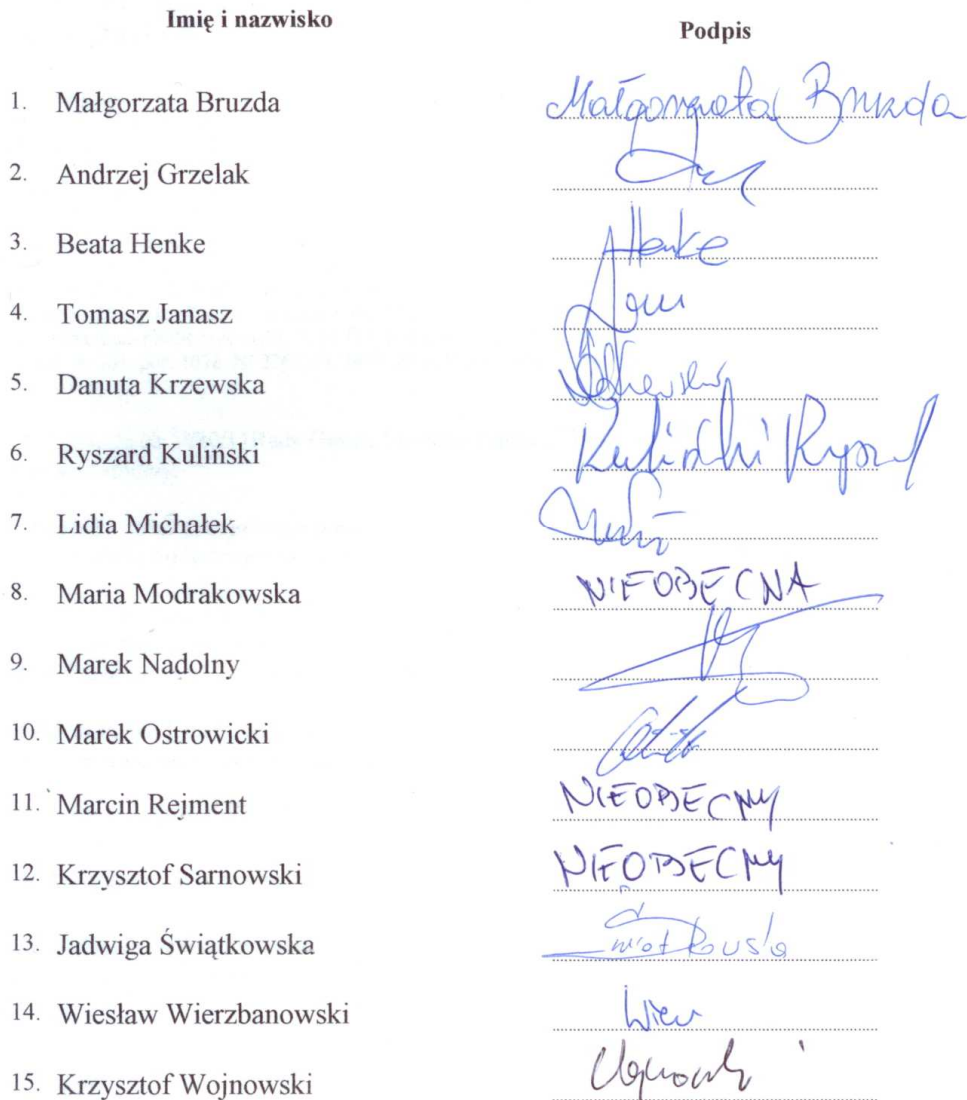 Imię i nazwisko Podpis
1. Małgorzata Bruzda Małgorzata Bruzda
2. Andrzej Grzelak
3. Beata Henke Henke
4. Tomasz Janasz
5. Danuta Krzewska
6. Ryszard Kuliński Kuliński Ryszard
7. Lidia Michałek
8. Maria Modrakowska NIEOBECNA
9. Marek Nadolny
10. Marek Ostrowicki
11. Marcin Rejment NIEOBECNY
12. Krzysztof Sarnowski NIEOBECNY
13. Jadwiga Świątkowska
14. Wiesław Wierzbanowski
15. Krzysztof Wojnowski